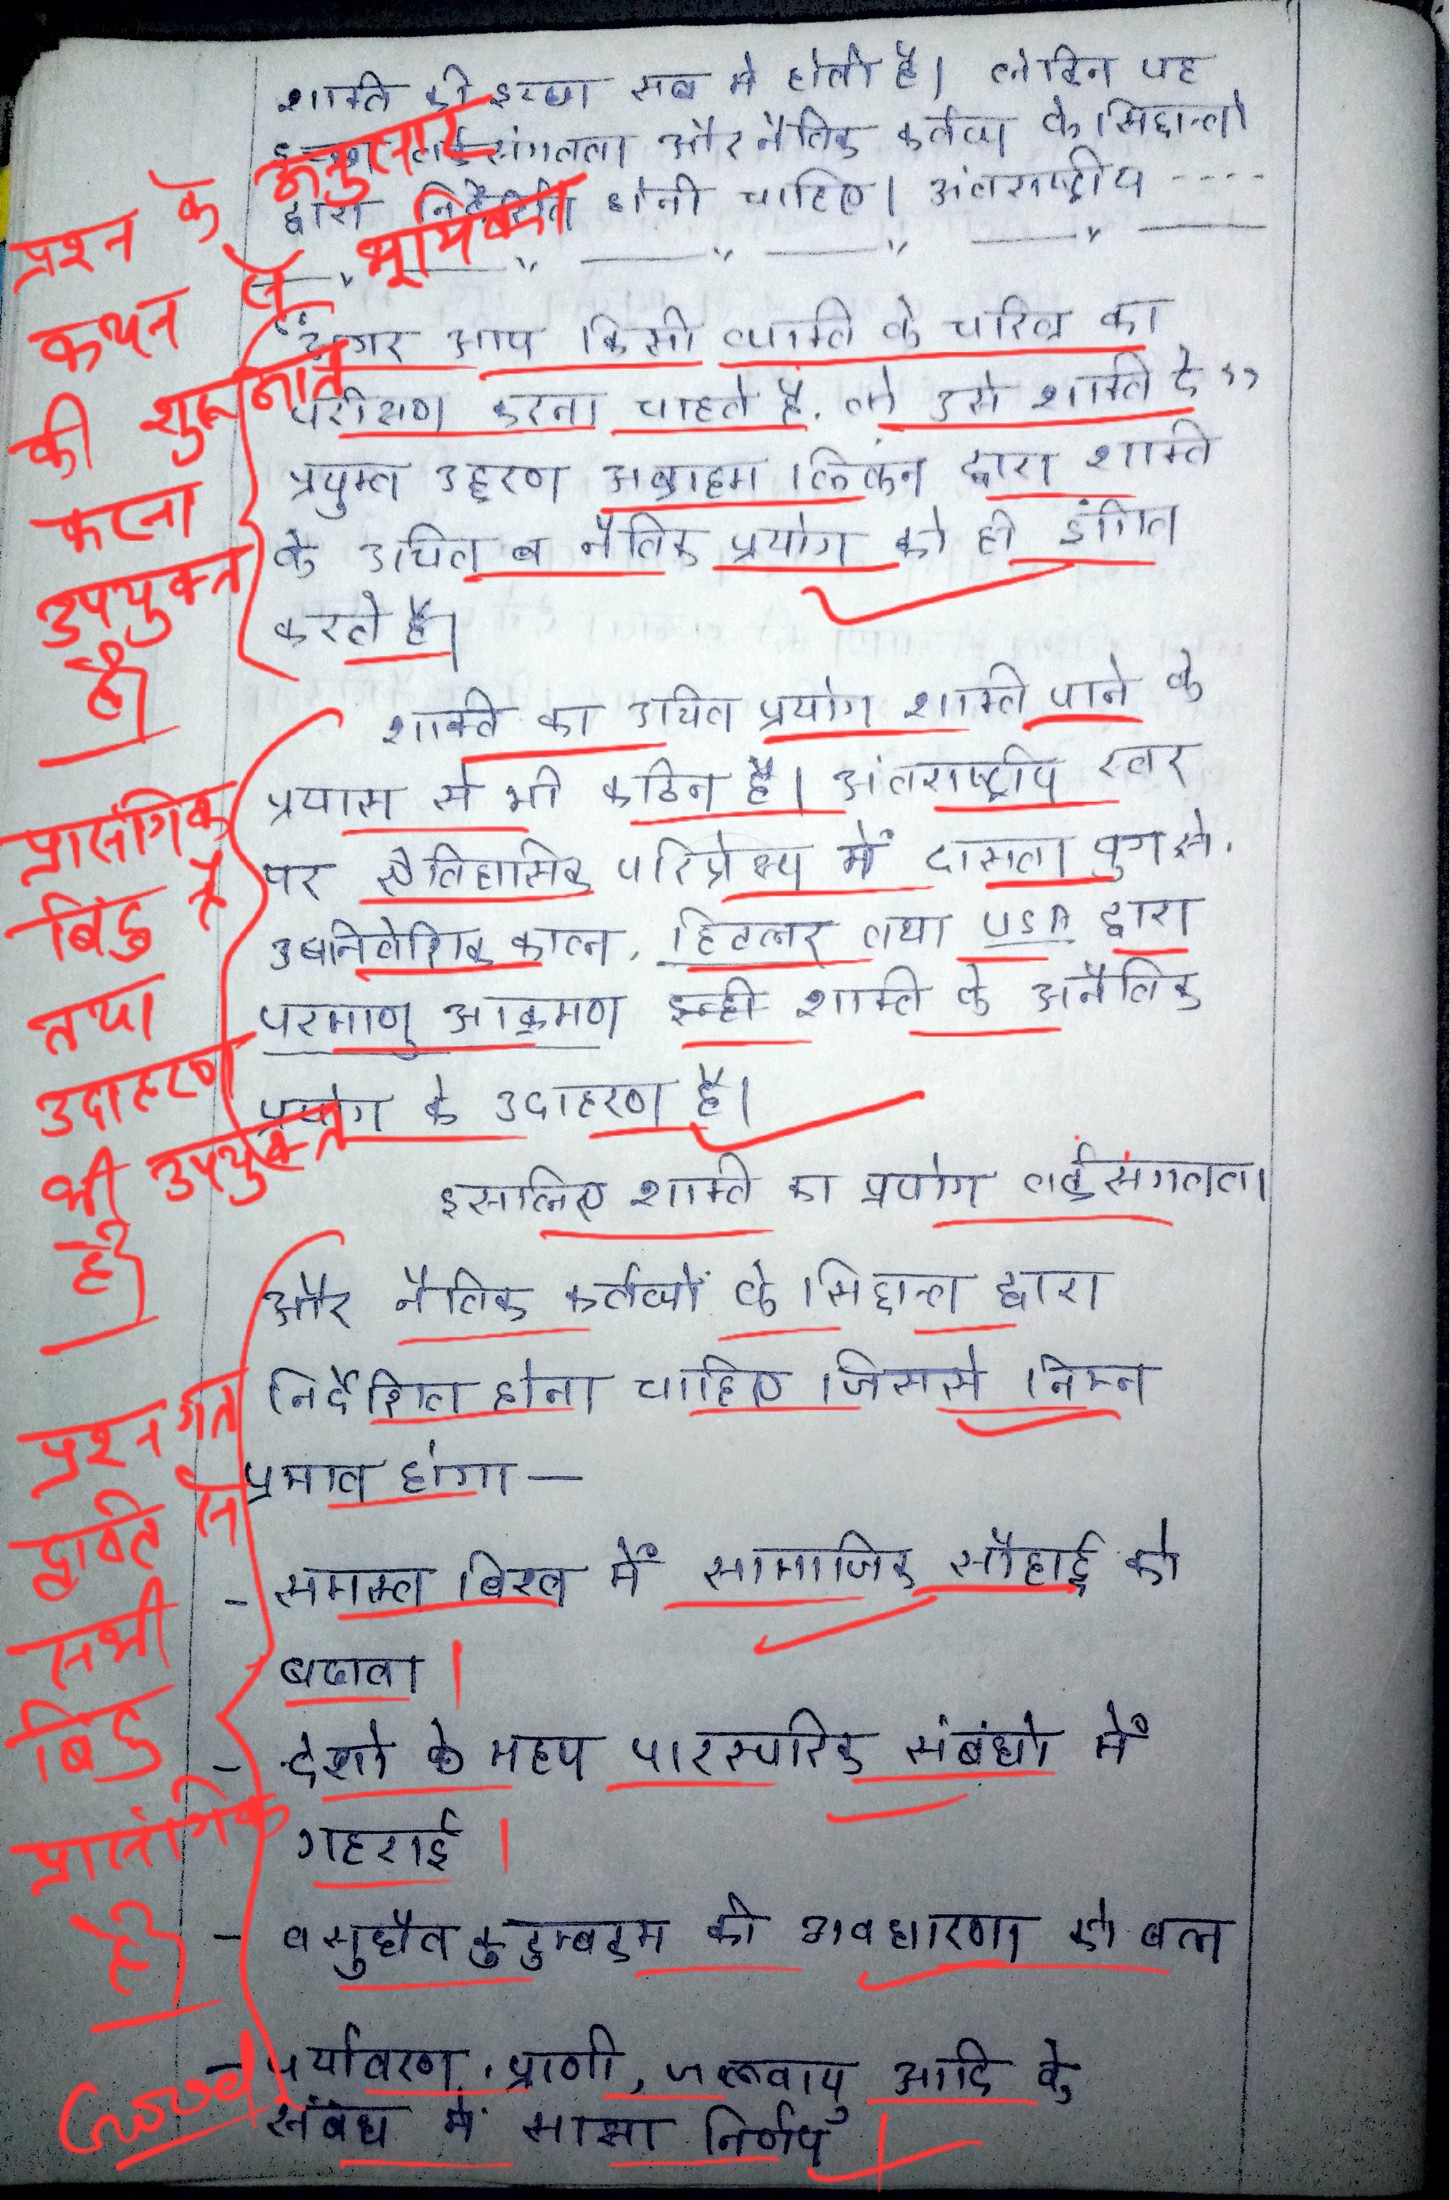 शक्ति की इच्छा सब में होती है। लेकिन यह
इच्छा तर्कसंगतता और नैतिक कर्तव्य के सिद्धान्तो
द्वारा निर्देशित होनी चाहिए। अंतराष्ट्रीय ----
प्रश्न के अनुसार
कथन से भूमिका
की शुरूआत
करना
उपयुक्त
है।
"अगर आप किसी व्यक्ति के चरित्र का
परीक्षण करना चाहते है, तो उसे शक्ति दे"
प्रयुक्त उद्दरण अब्राहम लिंकन द्वारा शक्ति
के उचित व नैतिक प्रयोग को ही इंगित
करते है।
शक्ति का उचित प्रयोग शक्ति पाने के
प्रयास से भी कठिन है। अंतराष्ट्रीय स्तर
पर ऐतिहासिक परिप्रेक्ष्य में दासता युग से,
उपनिवेशिक काल, हिटलर तथा USA द्वारा
परमाणु आक्रमण इन्ही शक्ति के अनैतिक
प्रयोग के उदाहरण है।
प्रासंगिक
बिंदु है
तथा
उदाहरण
भी उपयुक्त
है।
इसलिए शक्ति का प्रयोग तर्कसंगतता
और नैतिक कर्तव्यों के सिद्दान्त द्वारा
निर्देशित होना चाहिए जिससे निम्न
प्रभाव होगा —
- समस्त विश्व में सामाजिक सौहार्द्र को
बढावा।
- देशो के मध्य पारस्परिक संबंधो में
गहराई।
- वसुधैव कुटुम्बकम की अवधारणा को बल
- पर्यावरण, प्राणी, जलवायु आदि के
संबंध में साझा निर्णय।
प्रश्नगत
दृष्टि से
सभी
बिंदु
प्रासंगिक
है।
Good